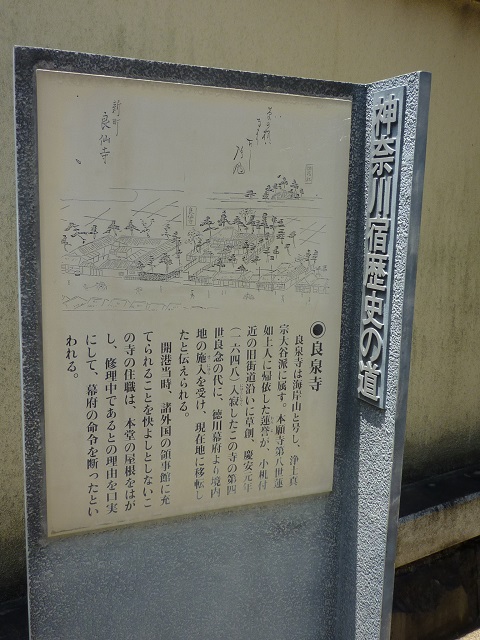 神奈川宿歴史の道
新町
良仙寺
●良泉寺
良泉寺は海岸山と号し、浄土真
宗大谷派に属す。本願寺第八世蓮
如上人に帰依した蓮誉が、小机付
近の旧街道沿いに草創、慶安元年
（一六四八）入寂したこの寺の第四
世良念の代に、徳川幕府より境内
地の施入を受け、現在地に移転し
たと伝えられる。
開港当時、諸外国の領事館に充
てられることを快よしとしないこ
の寺の住職は、本堂の屋根をはが
し、修理中であるとの理由を口実
にして、幕府の命令を断ったとい
われる。